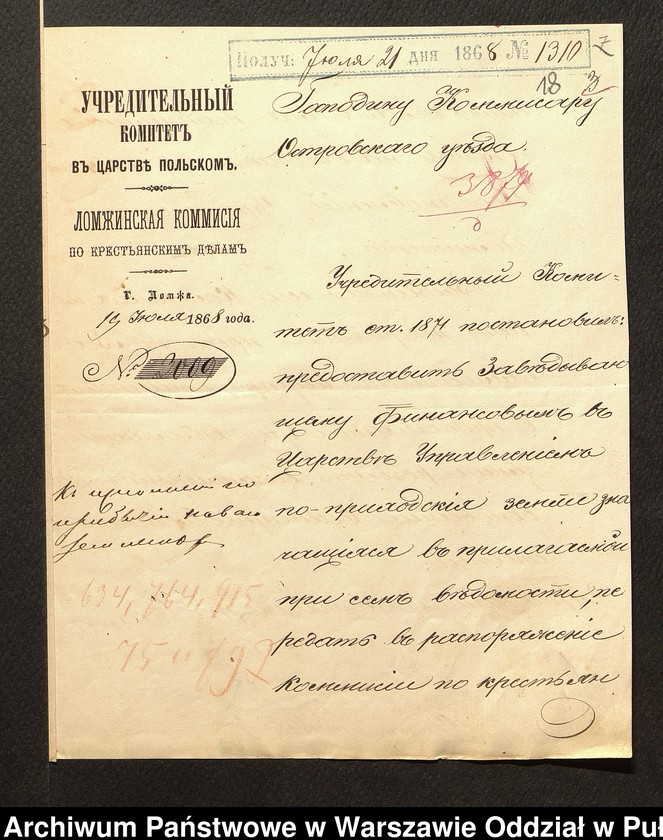 Получ: Июля 21 дня 1868 № 1310
7
18 3
УЧРЕДИТЕЛЬНЫЙ
КОМИТЕТЪ
ВЪ ЦАРСТВѢ ПОЛЬСКОМЪ.
ЛОМЖИНСКАЯ КОММИСІЯ
ПО КРЕСТЬЯНСКИМЪ ДѢЛАМЪ
Г. Ломжа.
19 Июля 1868 года.
№ 2009
Господину Коммисару
Островскаго уѣзда.
Учредительный Коми=
тетъ ст. 1871 постановилъ:
предоставить Завѣдываю
щему Финансовымъ въ
Царствѣ Управленіемъ
по-приходскія земли зна
чащіяся въ прилагаемой
при семъ вѣдомости, пе
редать въ распоряженіе
Коммисіи по крестьян
634, 764, 915
Archiwum Państwowe w Warszawie Oddział w Pu